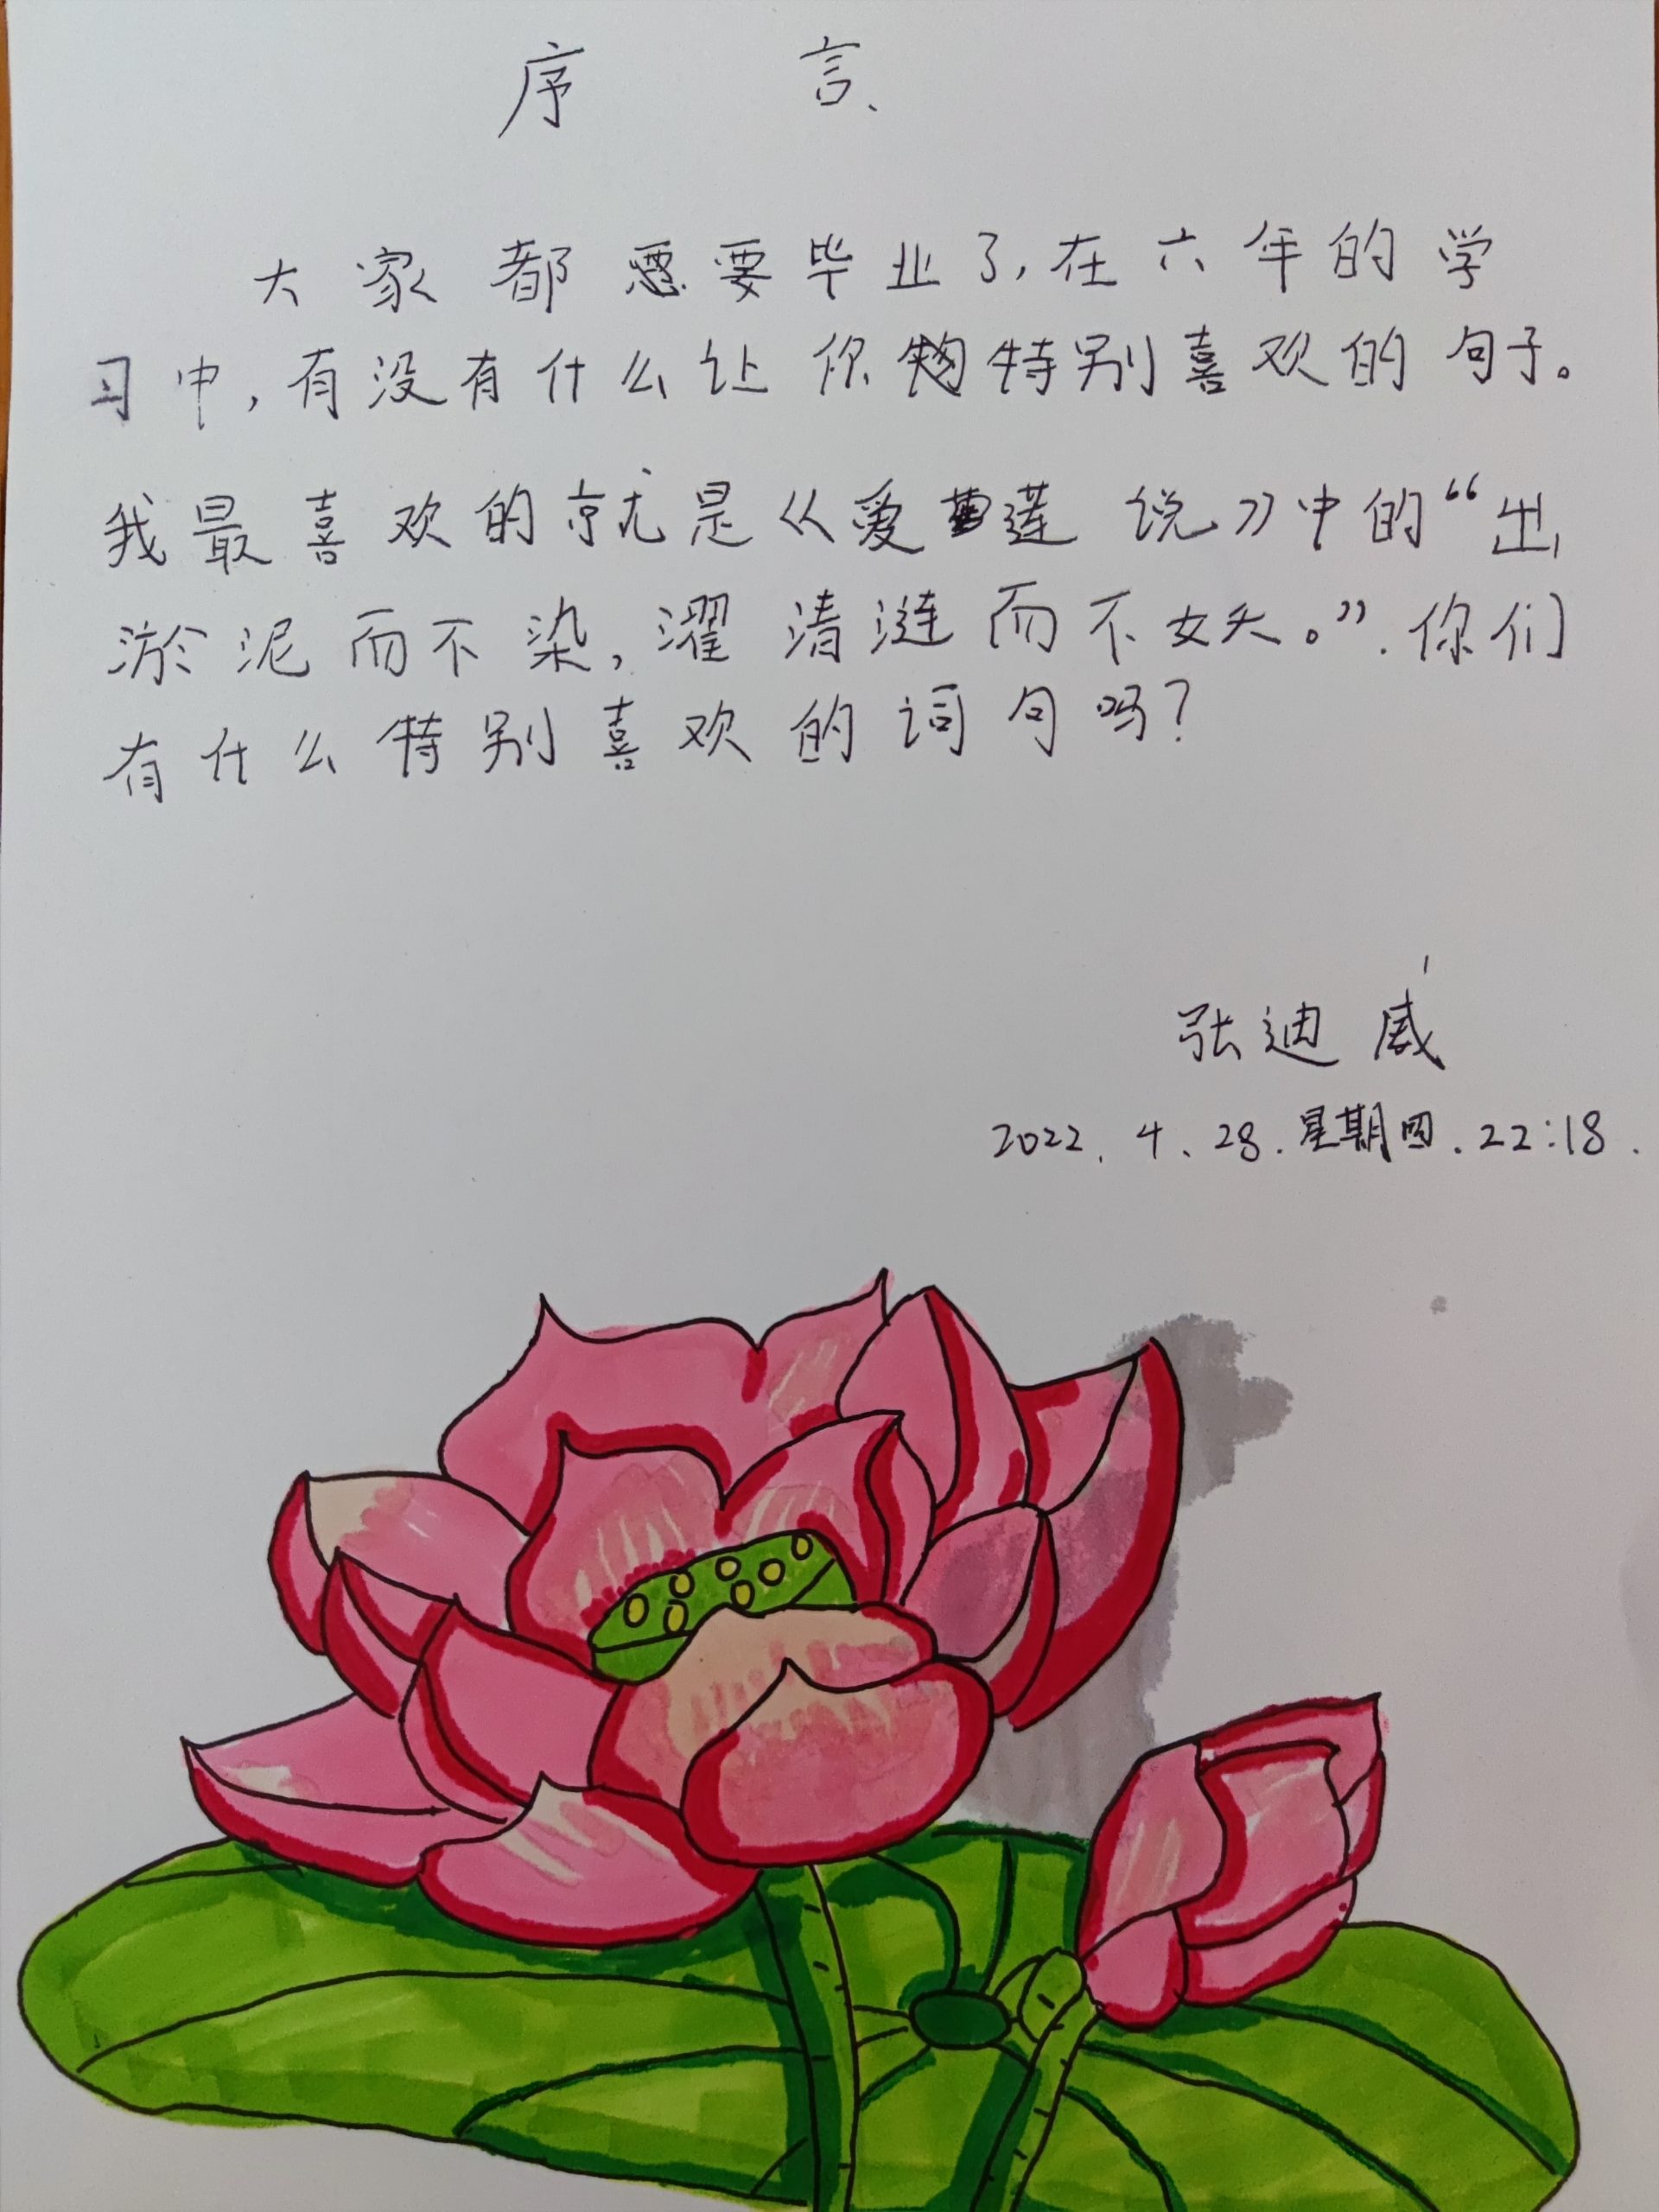 序 言、
大家都要毕业了,在六年的学
习中,有没有什么让你特别喜欢的句子。
我最喜欢的就是《爱莲说》中的“出
淤泥而不染,濯清涟而不妖。”.你们
有什么特别喜欢的词句吗?
张迪威
2022.4.28.星期四.22:18.